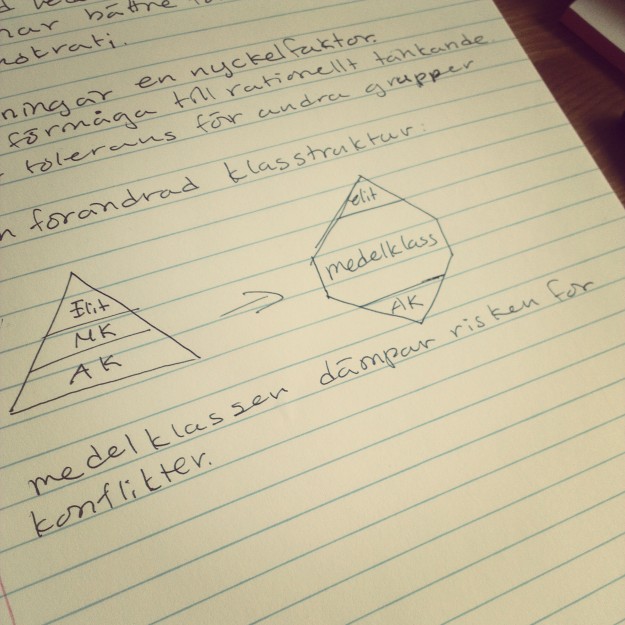 har bättre
ningar en nyckelfaktor.
förmåga till rationellt tänkande
tolerans för andra grupper
förändrad klasstruktur:
elit
medelklass
AK
Elit
MK
AK
medelklassen dämpar risken för
konflikter.